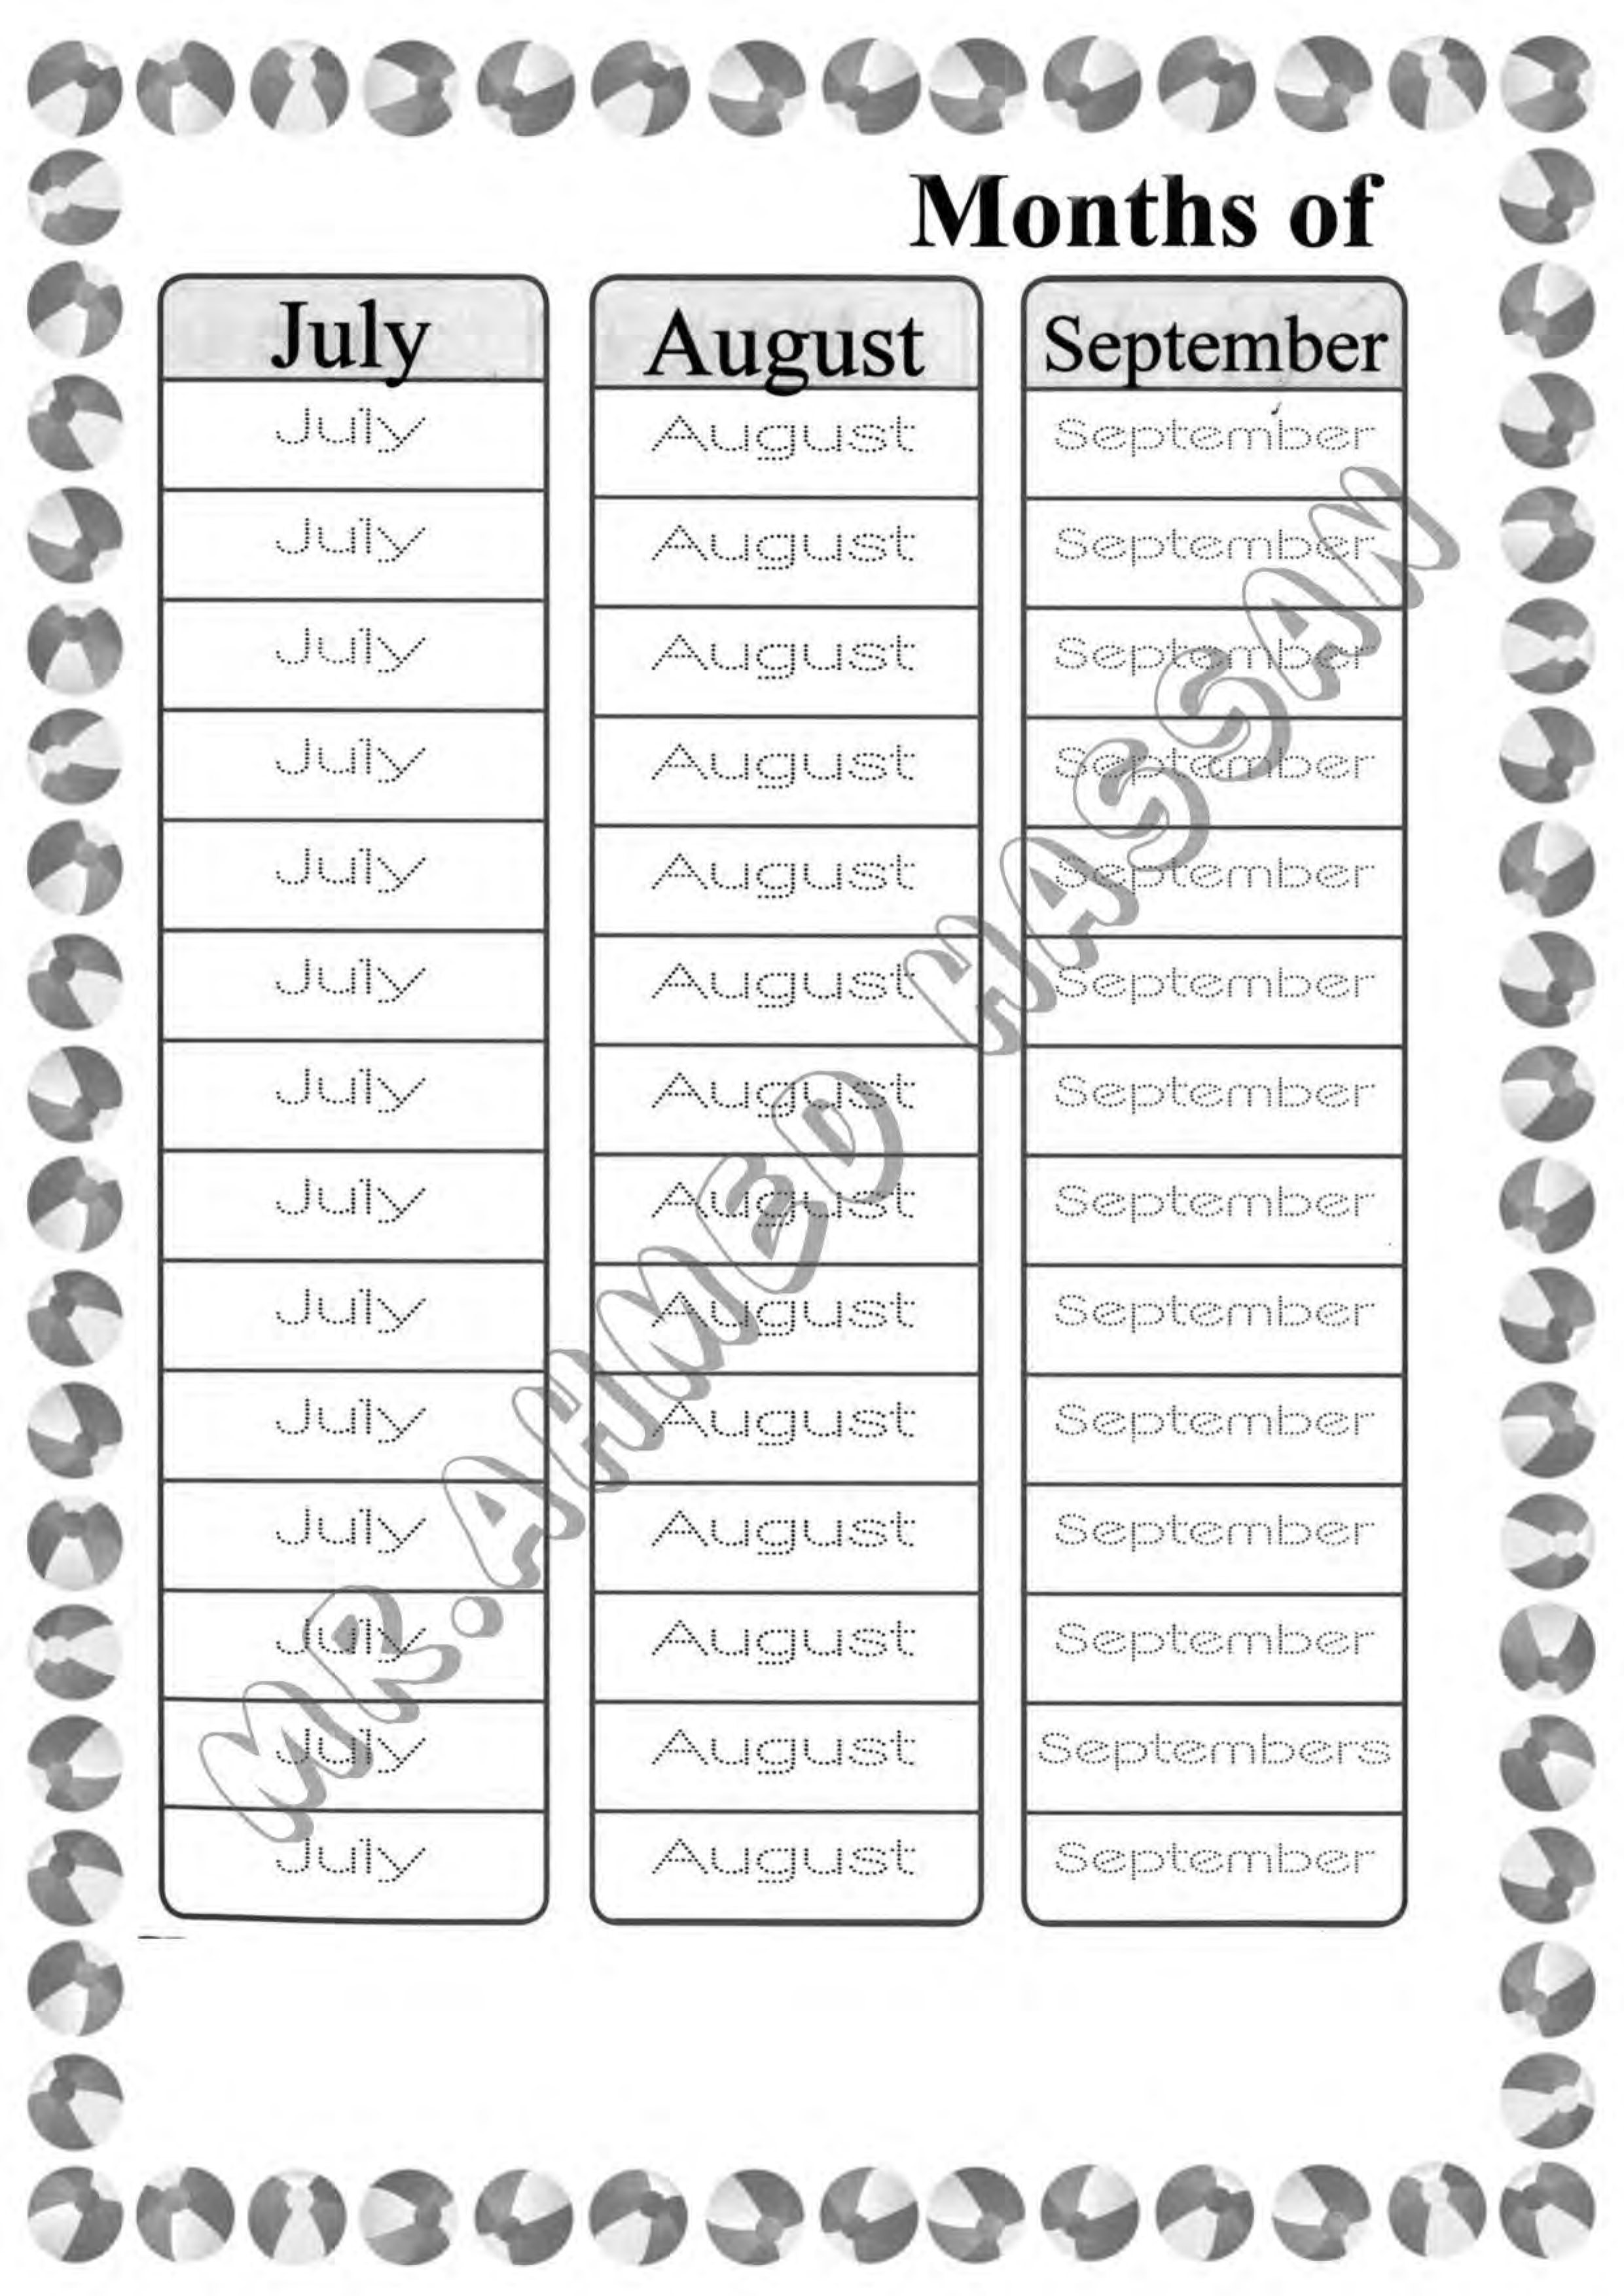 Months of
July August September
July August September
July August September
July August September
July August September
July August September
July August September
July August September
July August September
July August September
July August September
July August September
July August September
July August Septembers
July August September
MR.AHMED HASSAN